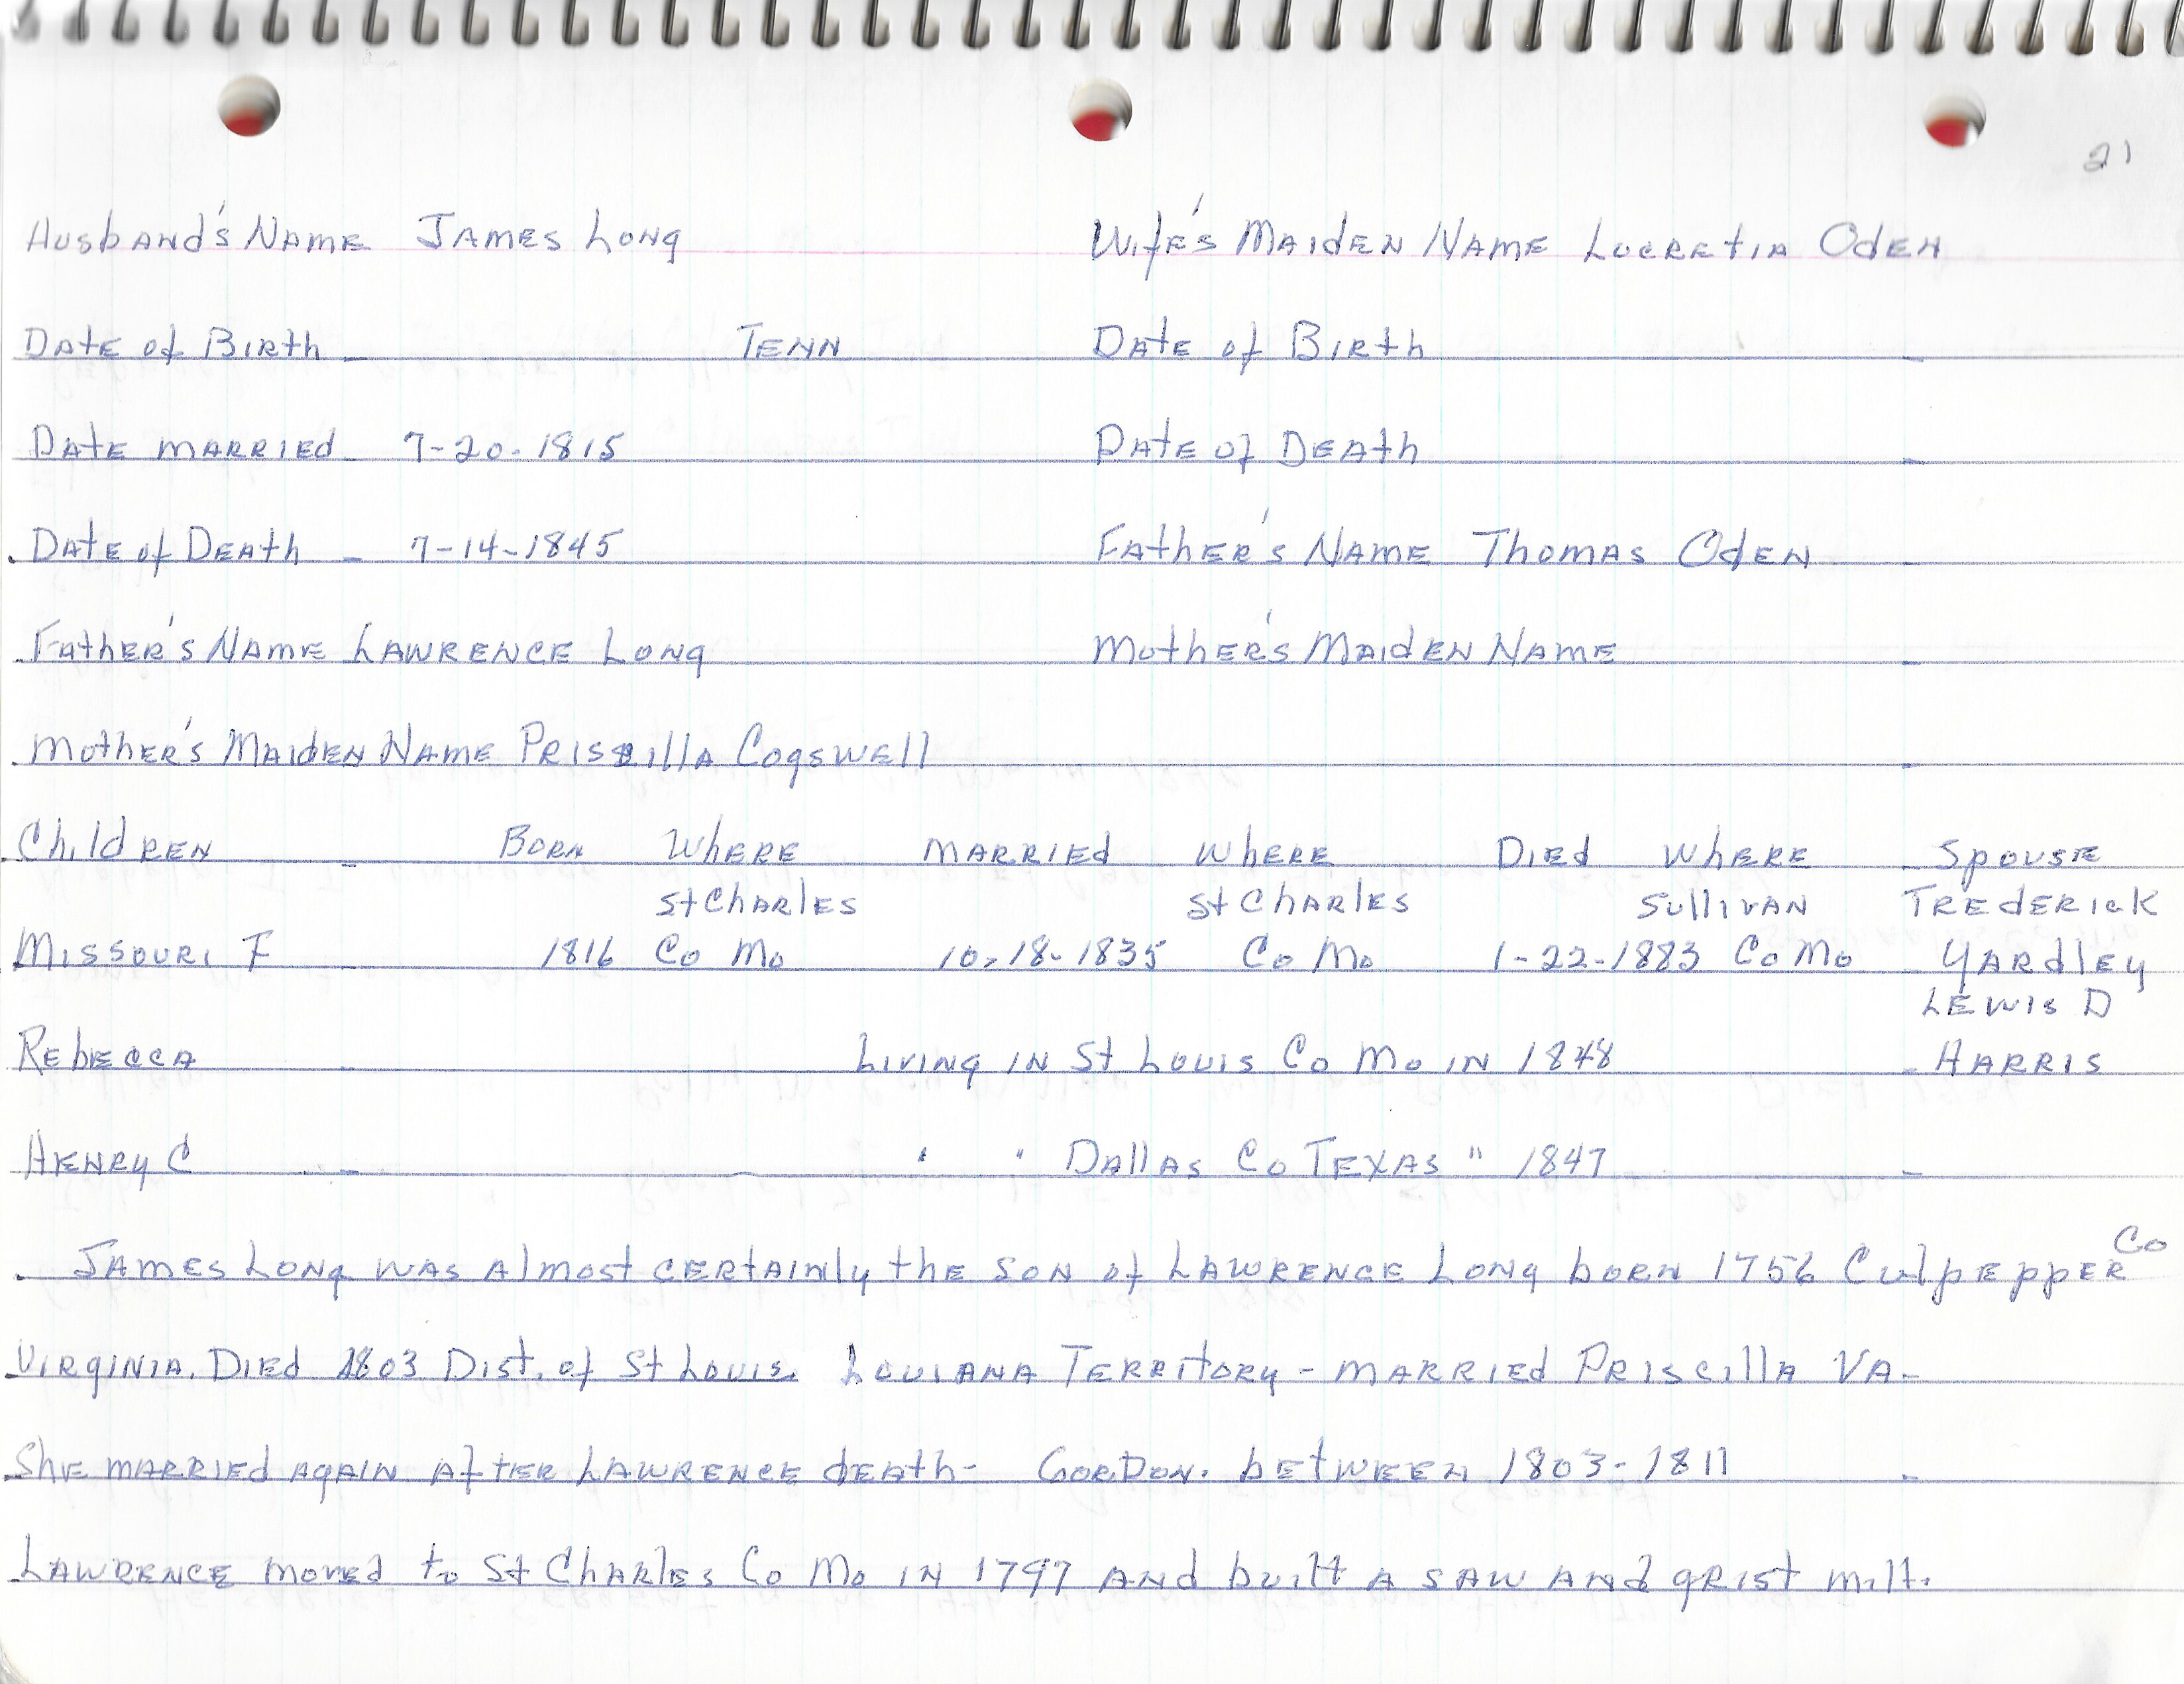 21
Husband's Name James Long Wife's Maiden Name Lucretia Oden
Date of Birth Tenn Date of Birth
Date married 7-20-1815 Date of Death
Date of Death 7-14-1845 Father's Name Thomas Oden
Father's Name Lawrence Long Mother's Maiden Name
Mother's Maiden Name Priscilla Cogswell
Children Born Where Married Where Died Where Spouse
St Charles St Charles Sullivan Trederick
Missouri F 1816 Co Mo 10-18-1835 Co Mo 1-22-1883 Co Mo Yardley
Lewis D
Rebecca Living in St Louis Co Mo in 1848 Harris
Henry C " " Dallas Co Texas " 1847
James Long was almost certainly the son of Lawrence Long born 1756 Culpepper Co
Virginia. Died 1803 Dist. of St Louis. Louiana Territory - married Priscilla VA-
She married again after Lawrence death- Gordon. between 1803-1811
Lawrence moved to St Charles Co Mo in 1797 and built a saw and grist mill.